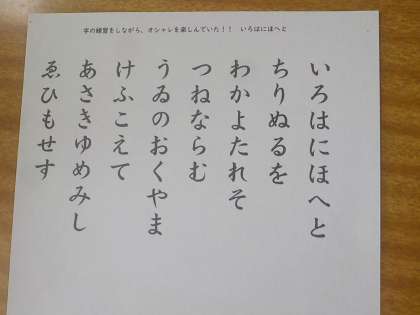 字の練習をしながら、オシャレを楽しんでいた!! いろはにほへと
いろはにほへと
ちりぬるを
わかよたれそ
つねならむ
うゐのおくやま
けふこえて
あさきゆめみし
ゑひもせす